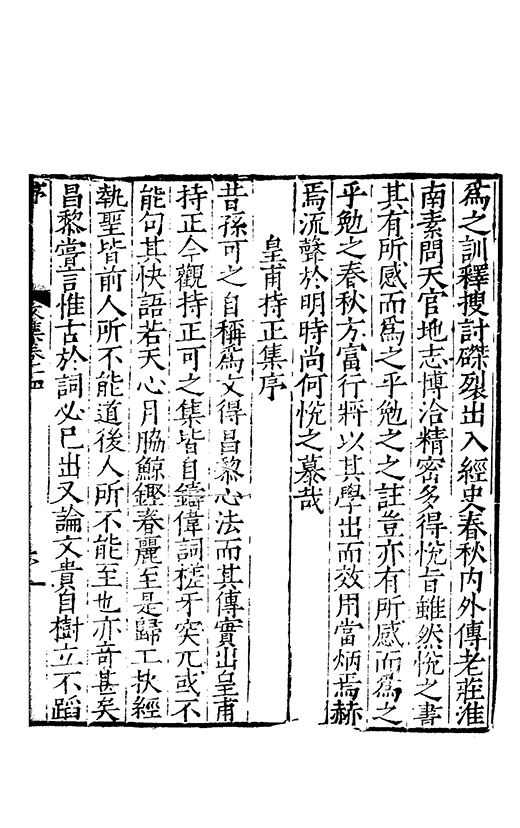 為之訓釋搜討磔裂出入經史春秋內外傳老莊淮
南素問天官地志博洽精密多得悅旨雖然悅之書
其有所感而為之乎勉之之註豈亦有所感而為之
乎勉之春秋方富行將以其學出而效用當炳焉赫
焉流聲於明時尚何悅之慕哉
皇甫持正集序
昔孫可之自稱為文得昌黎心法而其傳實出皇甫
持正今觀持正可之集皆自鑄偉詞槎牙突兀或不
能句其快語若天心月脇鯨鏗春麗至是歸工抶經
執聖皆前人所不能道後人所不能至也亦奇甚矣
昌黎嘗言惟古於詞必已出又論文貴自樹立不蹈
序
文集卷十四